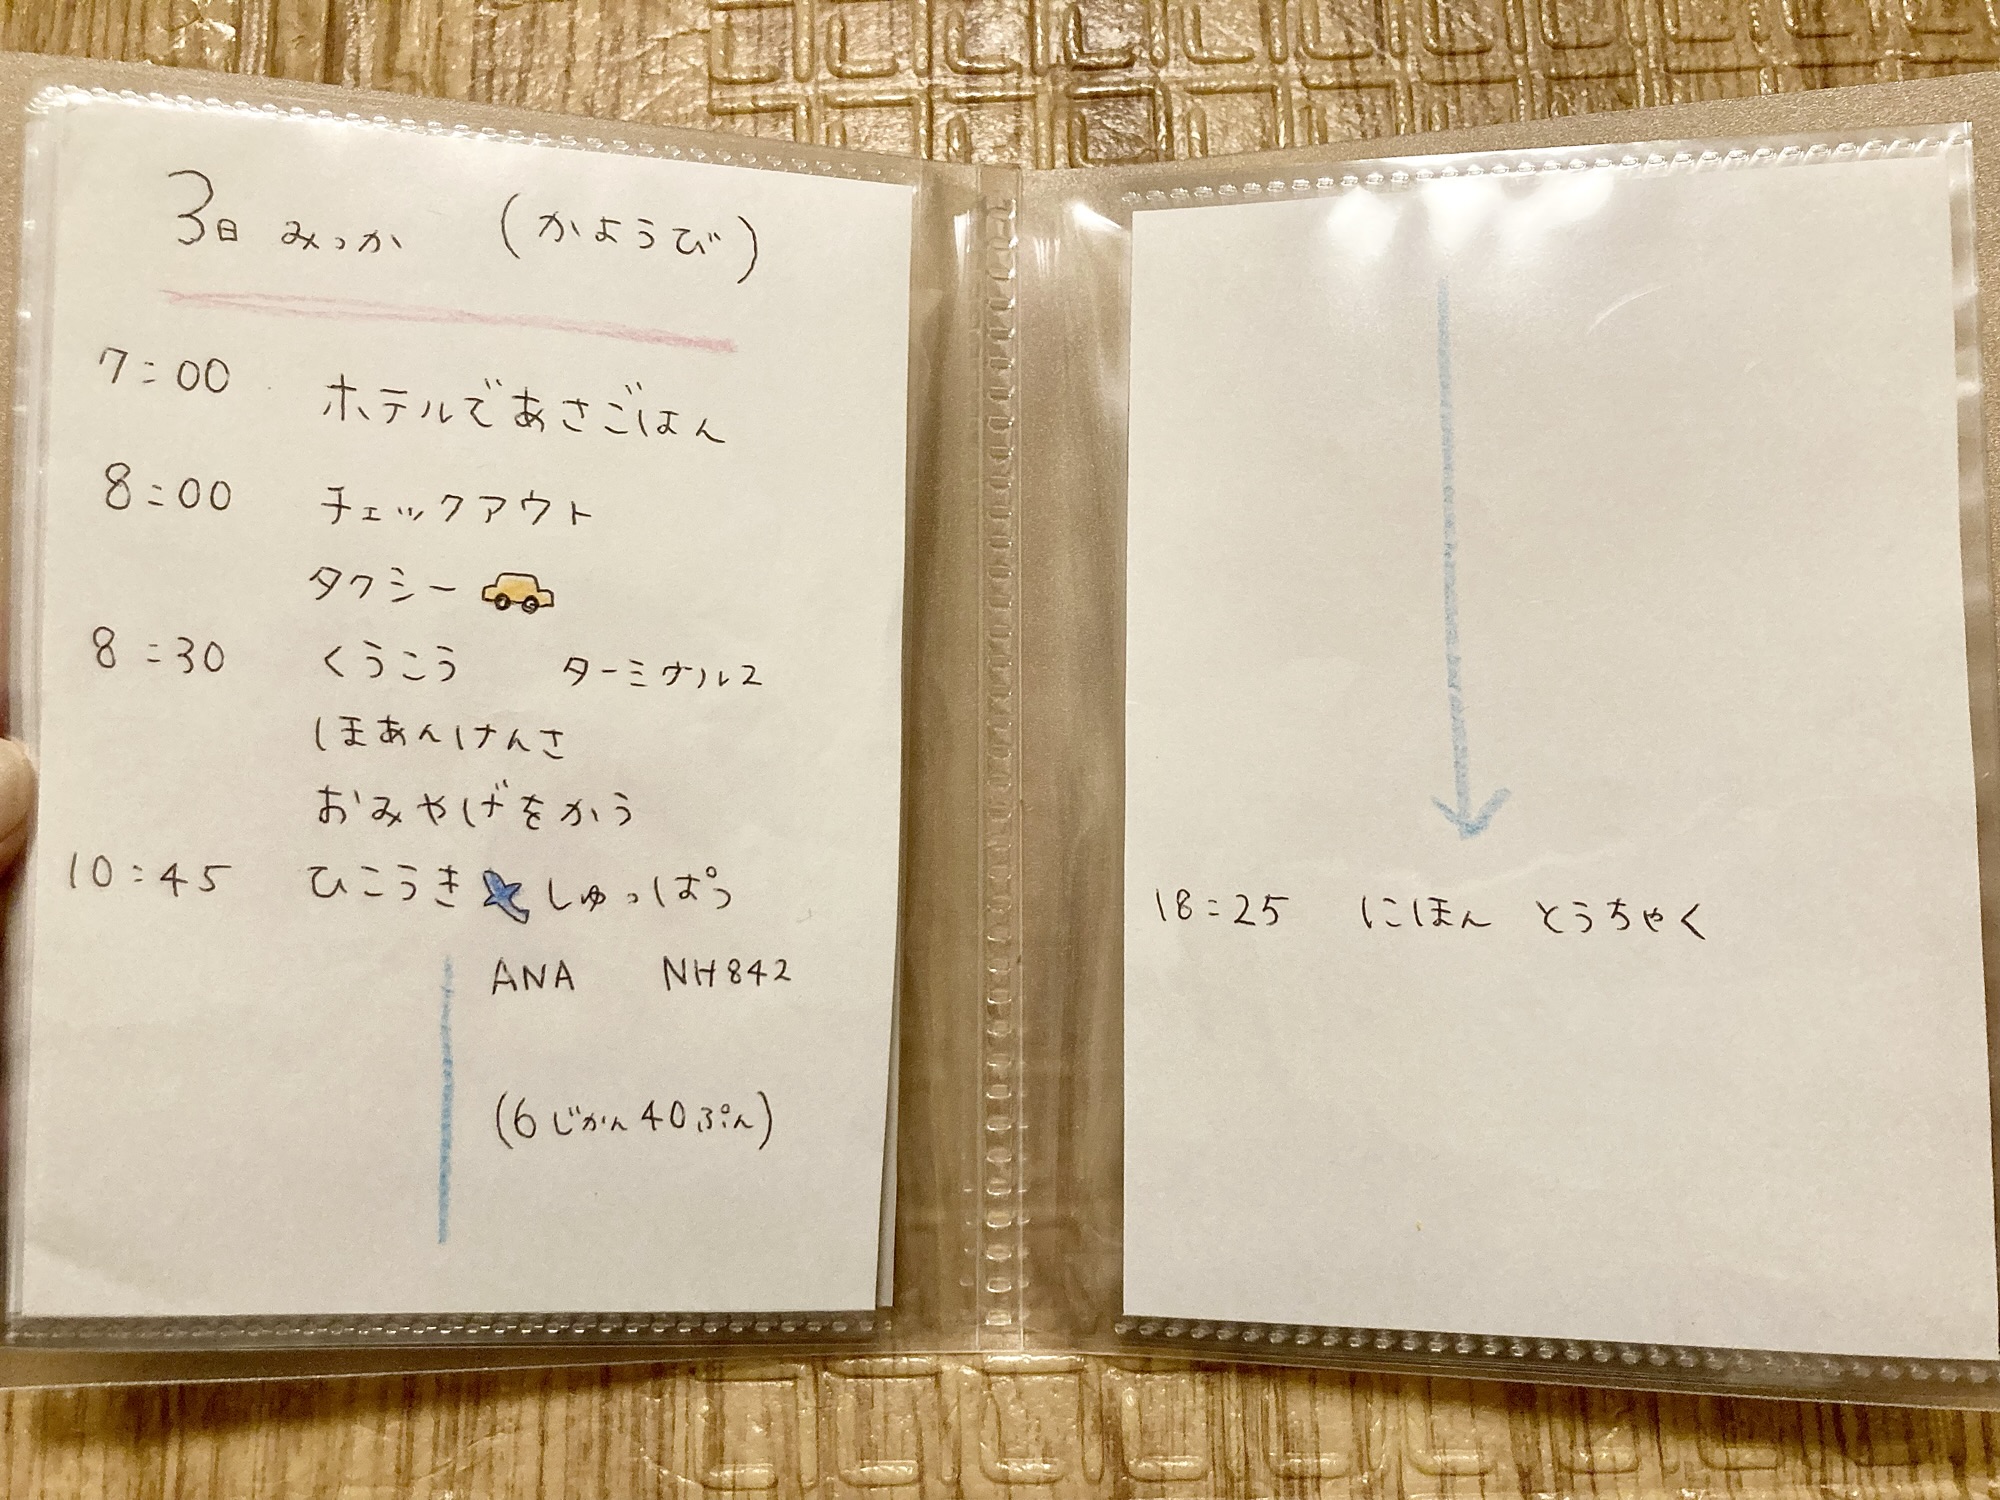 3日 みっか (かようび)
7:00 ホテルであさごはん
8:00 チェックアウト
タクシー
8:30 くうこう ターミナル2
ほあんけんさ
おみやげをかう
10:45 ひこうき しゅっぱつ
ANA NH842
(6じかん40ぷん)
18:25 にほん とうちゃく